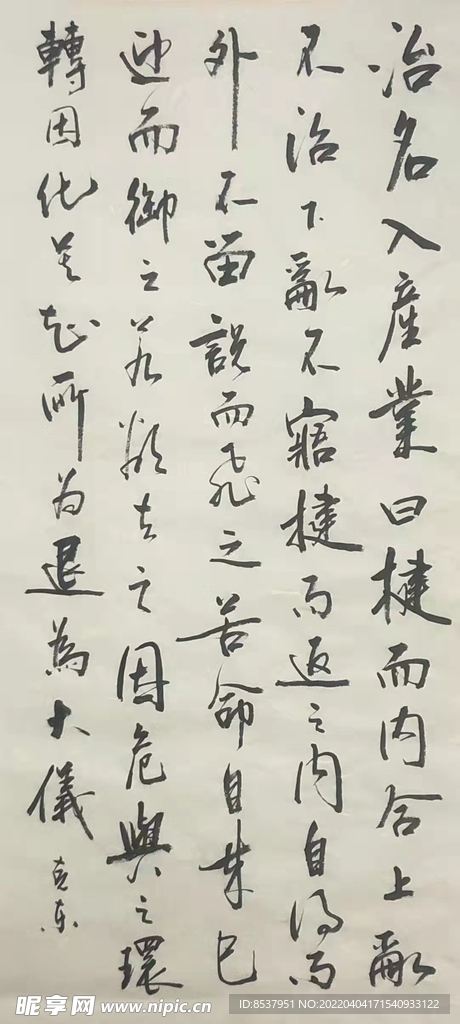 冶名入産業曰楗而内合上亂
不治下亂不寤楗而返之内自得而
外不留説而飛之若命自来已
迎而御之若欲去之因危與之環
轉因化莫知所为退為大儀
克东
昵享网 www.nipic.cn
ID:8537951 NO:20220404171540933122